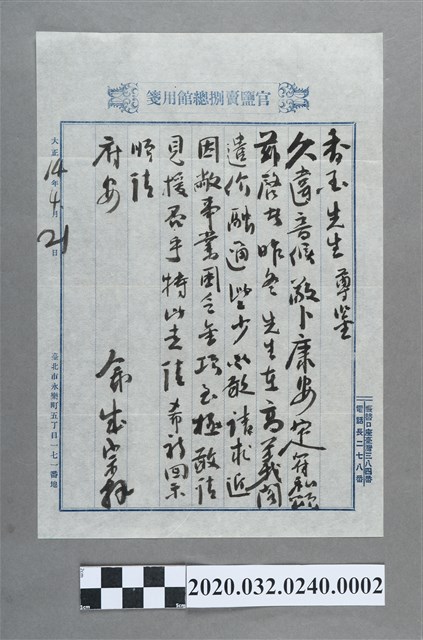 官鹽賣捌總館用箋
振替口座臺灣三八四番
電話長二七八番
香玉先生尊鑒
久違音候敬卜康安定符私頌
茲啓者昨冬先生在高義閣
遣价融通些少
因敝事業困乏金項至極敬請
見援否乎特此走陳希祈回示
順請
府安
大正14年4月21日
臺北市永樂町五丁目一七一番地
2cm
1cm
5cm
2020.032.0240.0002